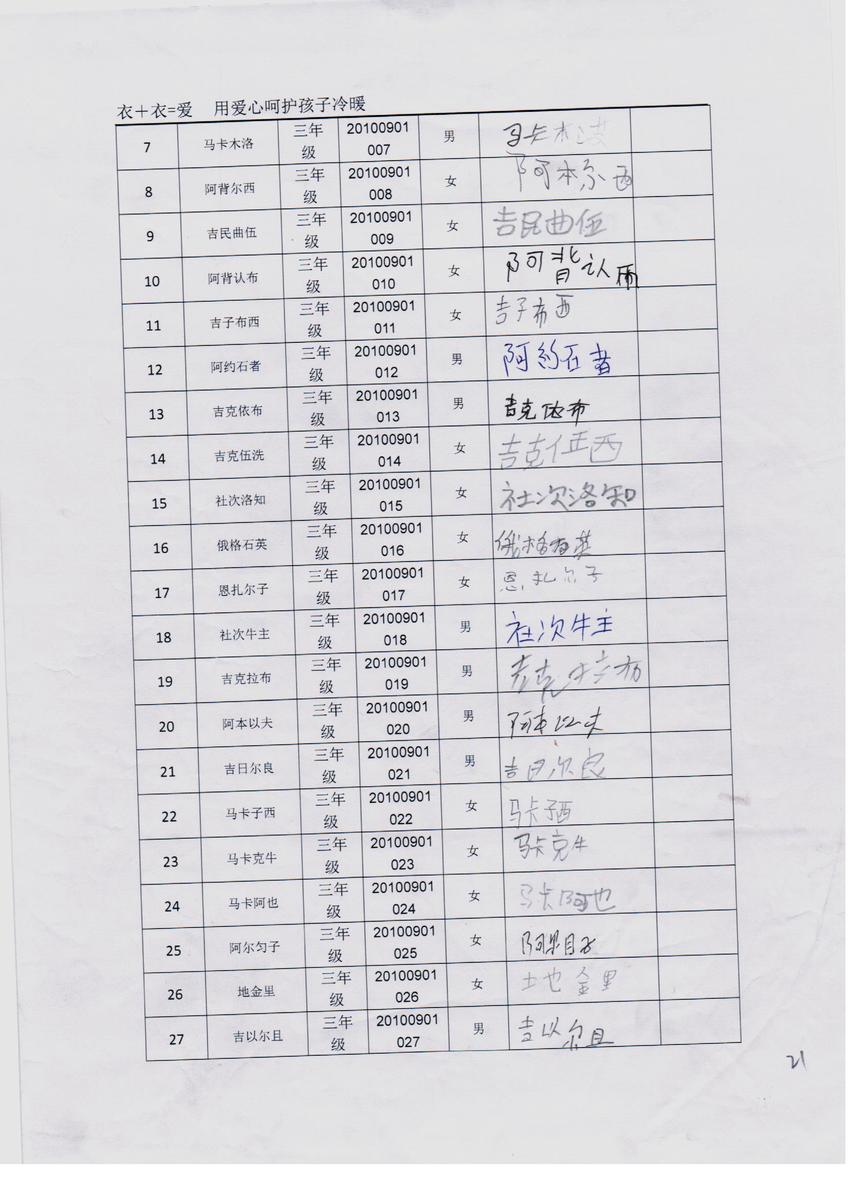 衣＋衣=爱 用爱心呵护孩子冷暖
7 马卡木洛 三年级 20100901007 男 马卡木洛
8 阿背尔西 三年级 20100901008 女 阿本尔西
9 吉民曲伍 三年级 20100901009 女 吉民曲伍
10 阿背认布 三年级 20100901010 女 阿背认布
11 吉子布西 三年级 20100901011 女 吉子布西
12 阿约石者 三年级 20100901012 男 阿约石者
13 吉克依布 三年级 20100901013 男 吉克依布
14 吉克伍洗 三年级 20100901014 女 吉克伍西
15 社次洛知 三年级 20100901015 女 社次洛知
16 俄格石英 三年级 20100901016 女 俄格石英
17 恩扎尔子 三年级 20100901017 女 恩扎尔子
18 社次牛主 三年级 20100901018 男 社次牛主
19 吉克拉布 三年级 20100901019 男 吉克拉布
20 阿本以夫 三年级 20100901020 男 阿本以夫
21 吉日尔良 三年级 20100901021 男 吉日尔良
22 马卡子西 三年级 20100901022 女 马卡子西
23 马卡克牛 三年级 20100901023 女 马卡克牛
24 马卡阿也 三年级 20100901024 女 马卡阿也
25 阿尔匀子 三年级 20100901025 女
26 地金里 三年级 20100901026 女 地金里
27 吉以尔且 三年级 20100901027 男 吉以尔且
21